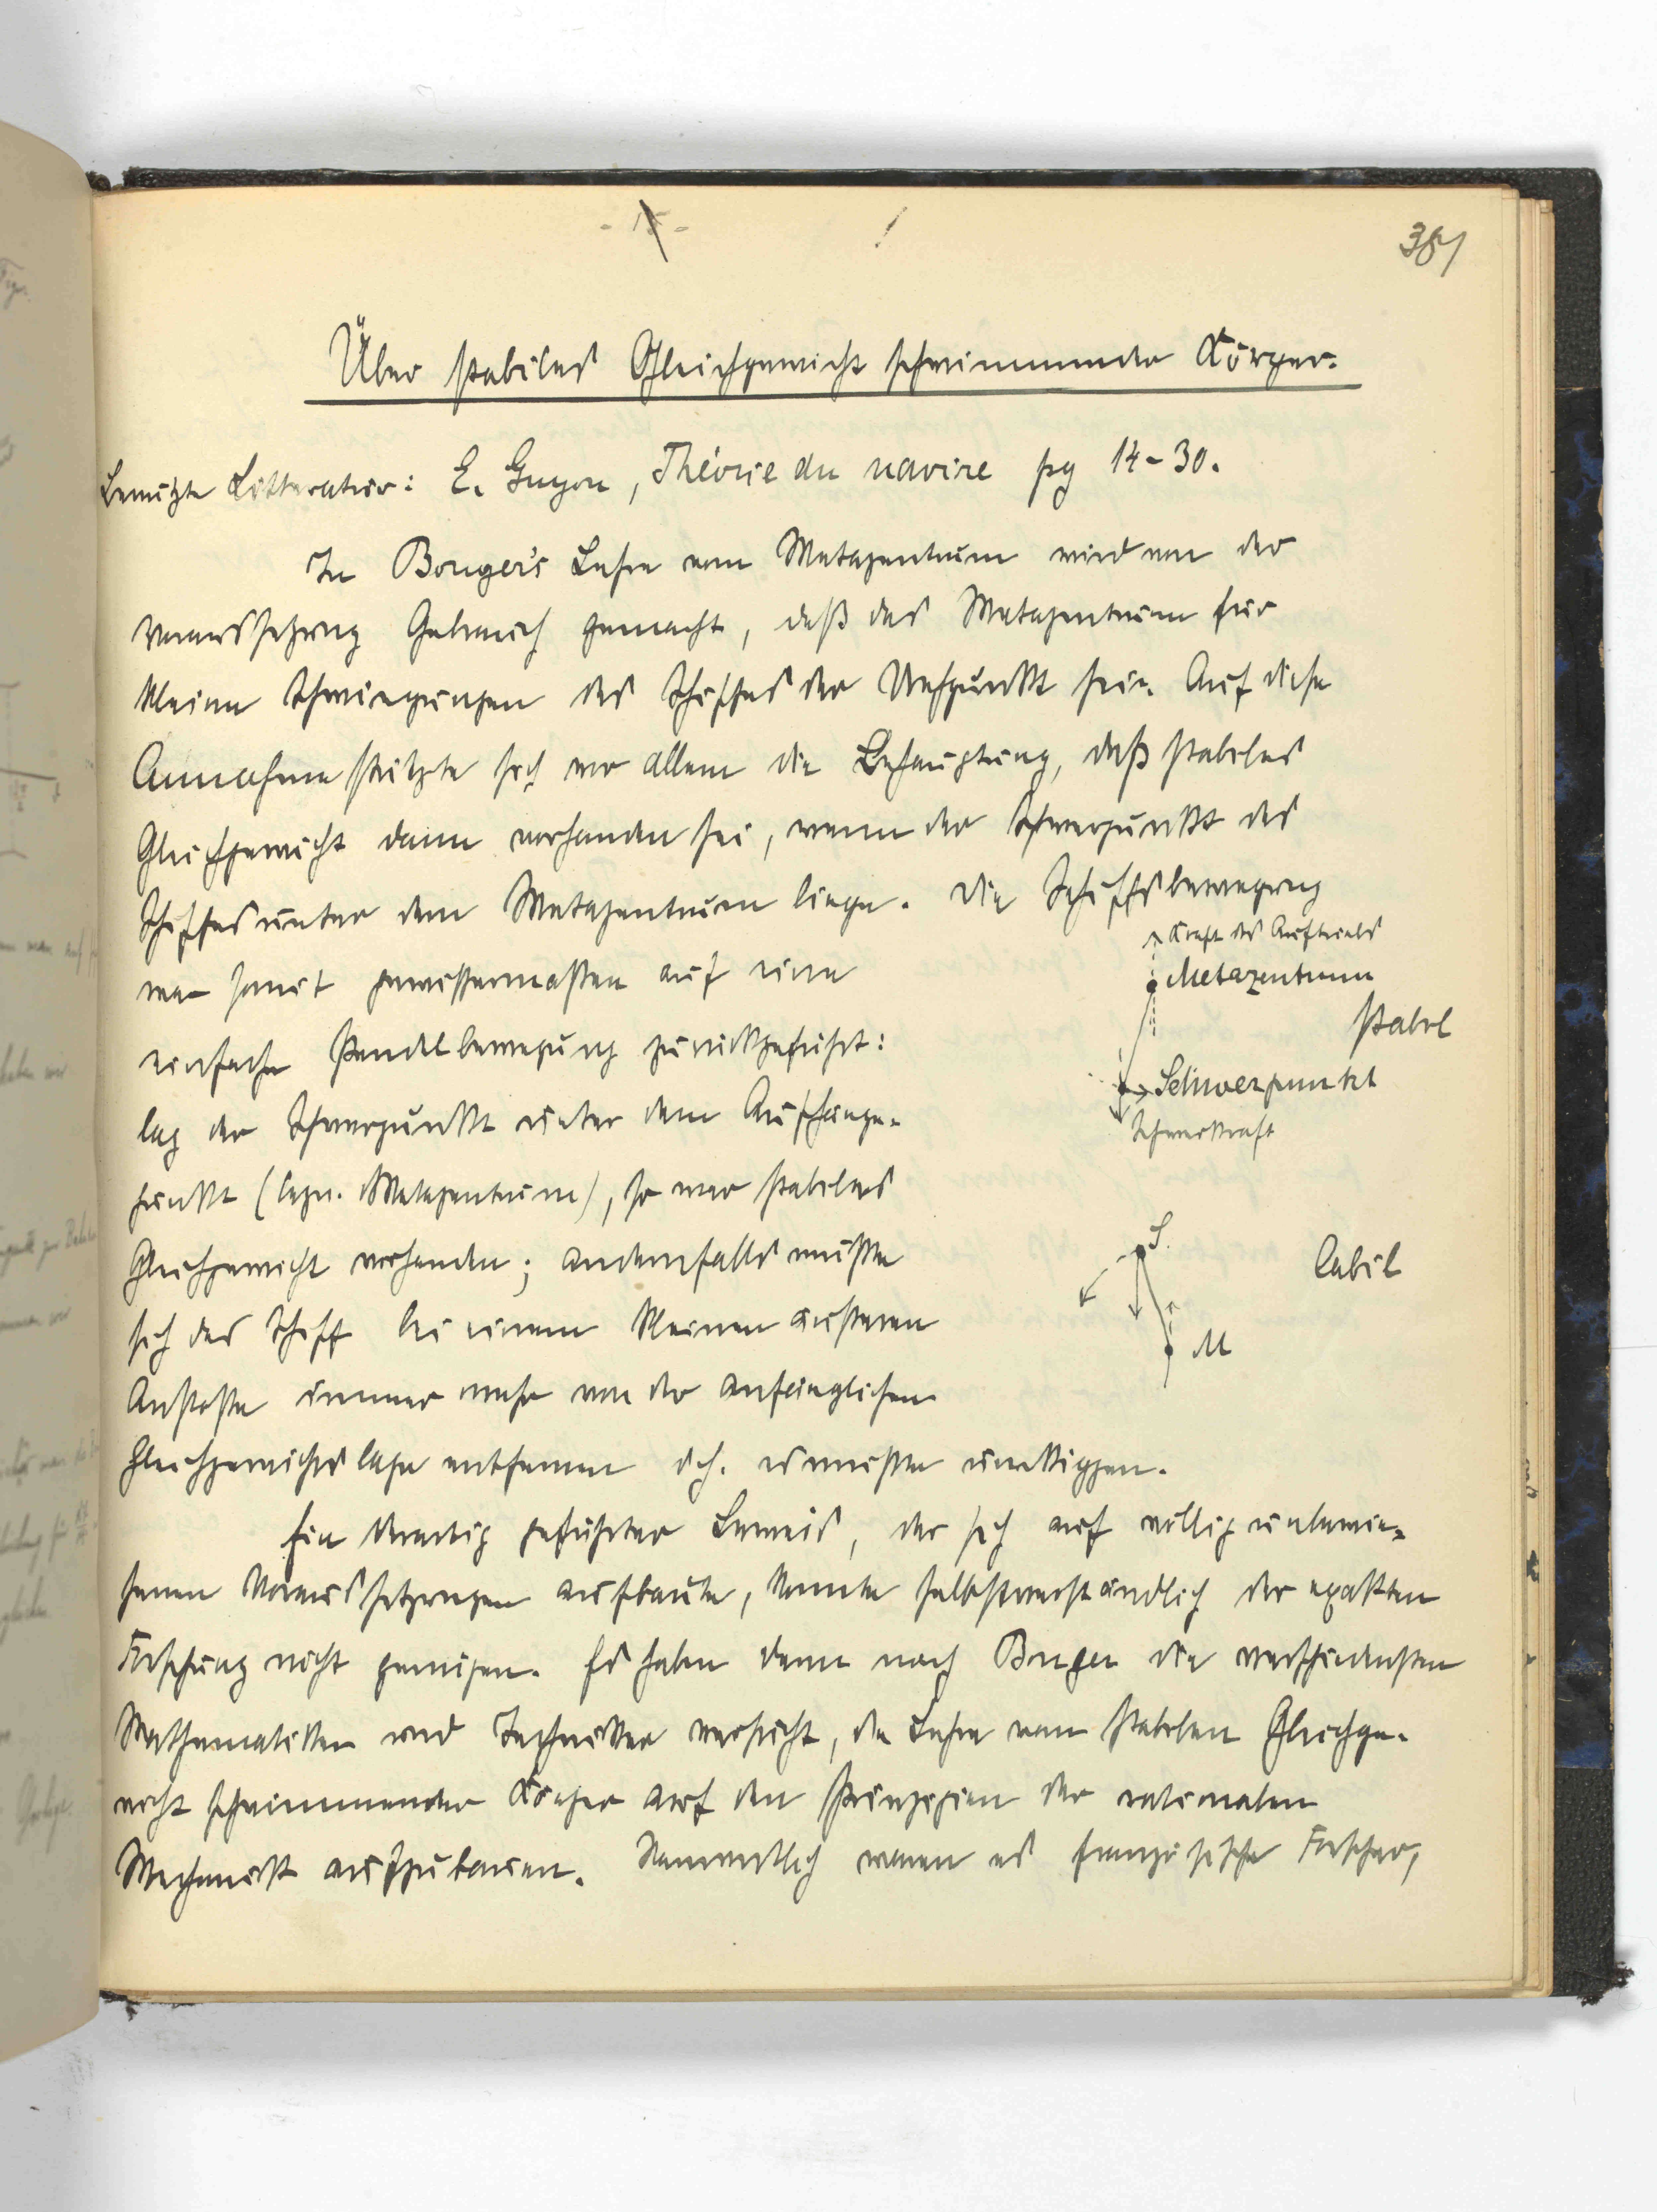 - 15 -
387
Über stabiles Gleichgewicht schwimmender Körper.
Benutzte Litteratur: E. Guyou, Théorie du navire pg 14-30.
In Bouger's Lehre vom Metazentrum wird von der
Voraussetzung Gebrauch gemacht, daß das Metazentrum für
kleine Schwingungen des Schiffes der Drehpunkt sei. Auf diese
Annahme stützte sich vor allem die Behauptung, daß stabiles
Gleichgewicht dann vorhanden sei, wenn der Schwerpunkt des
Schiffes unter dem Metazentrum liege. Die Schiffsbewegung
war somit gewissermassen auf eine
einfache Pendelbewegung zurückgeführt:
lag der Schwerpunkt unter dem Aufhänge-
punkt (bezw. Metazentrum), so war stabiles
Gleichgewicht vorhanden; andernfalls musste
sich das Schiff bei einem kleinen äusseren
Anstosse immer mehr von der anfänglichen
Gleichgewichtslage entfernen d.h. es musste umkippen.
Kraft des Auftriebs
Metazentrum
stabil
Schwerpunkt
Schwerkraft
S.
labil
M
Ein derartig geführter Beweis, der sich auf völlig unbewie-
senen Voraussetzungen aufbaute, konnte selbstverständlich der exakten
Forschung nicht genügen. Es haben denn nach Bouger die verschiedensten
Mathematiker und Techniker versucht, die Lehre vom stabilen Gleichge-
wicht schwimmender Körper auf den Prinzipien der rationalen
Mechanik aufzubauen. Namentlich waren es französische Forscher,